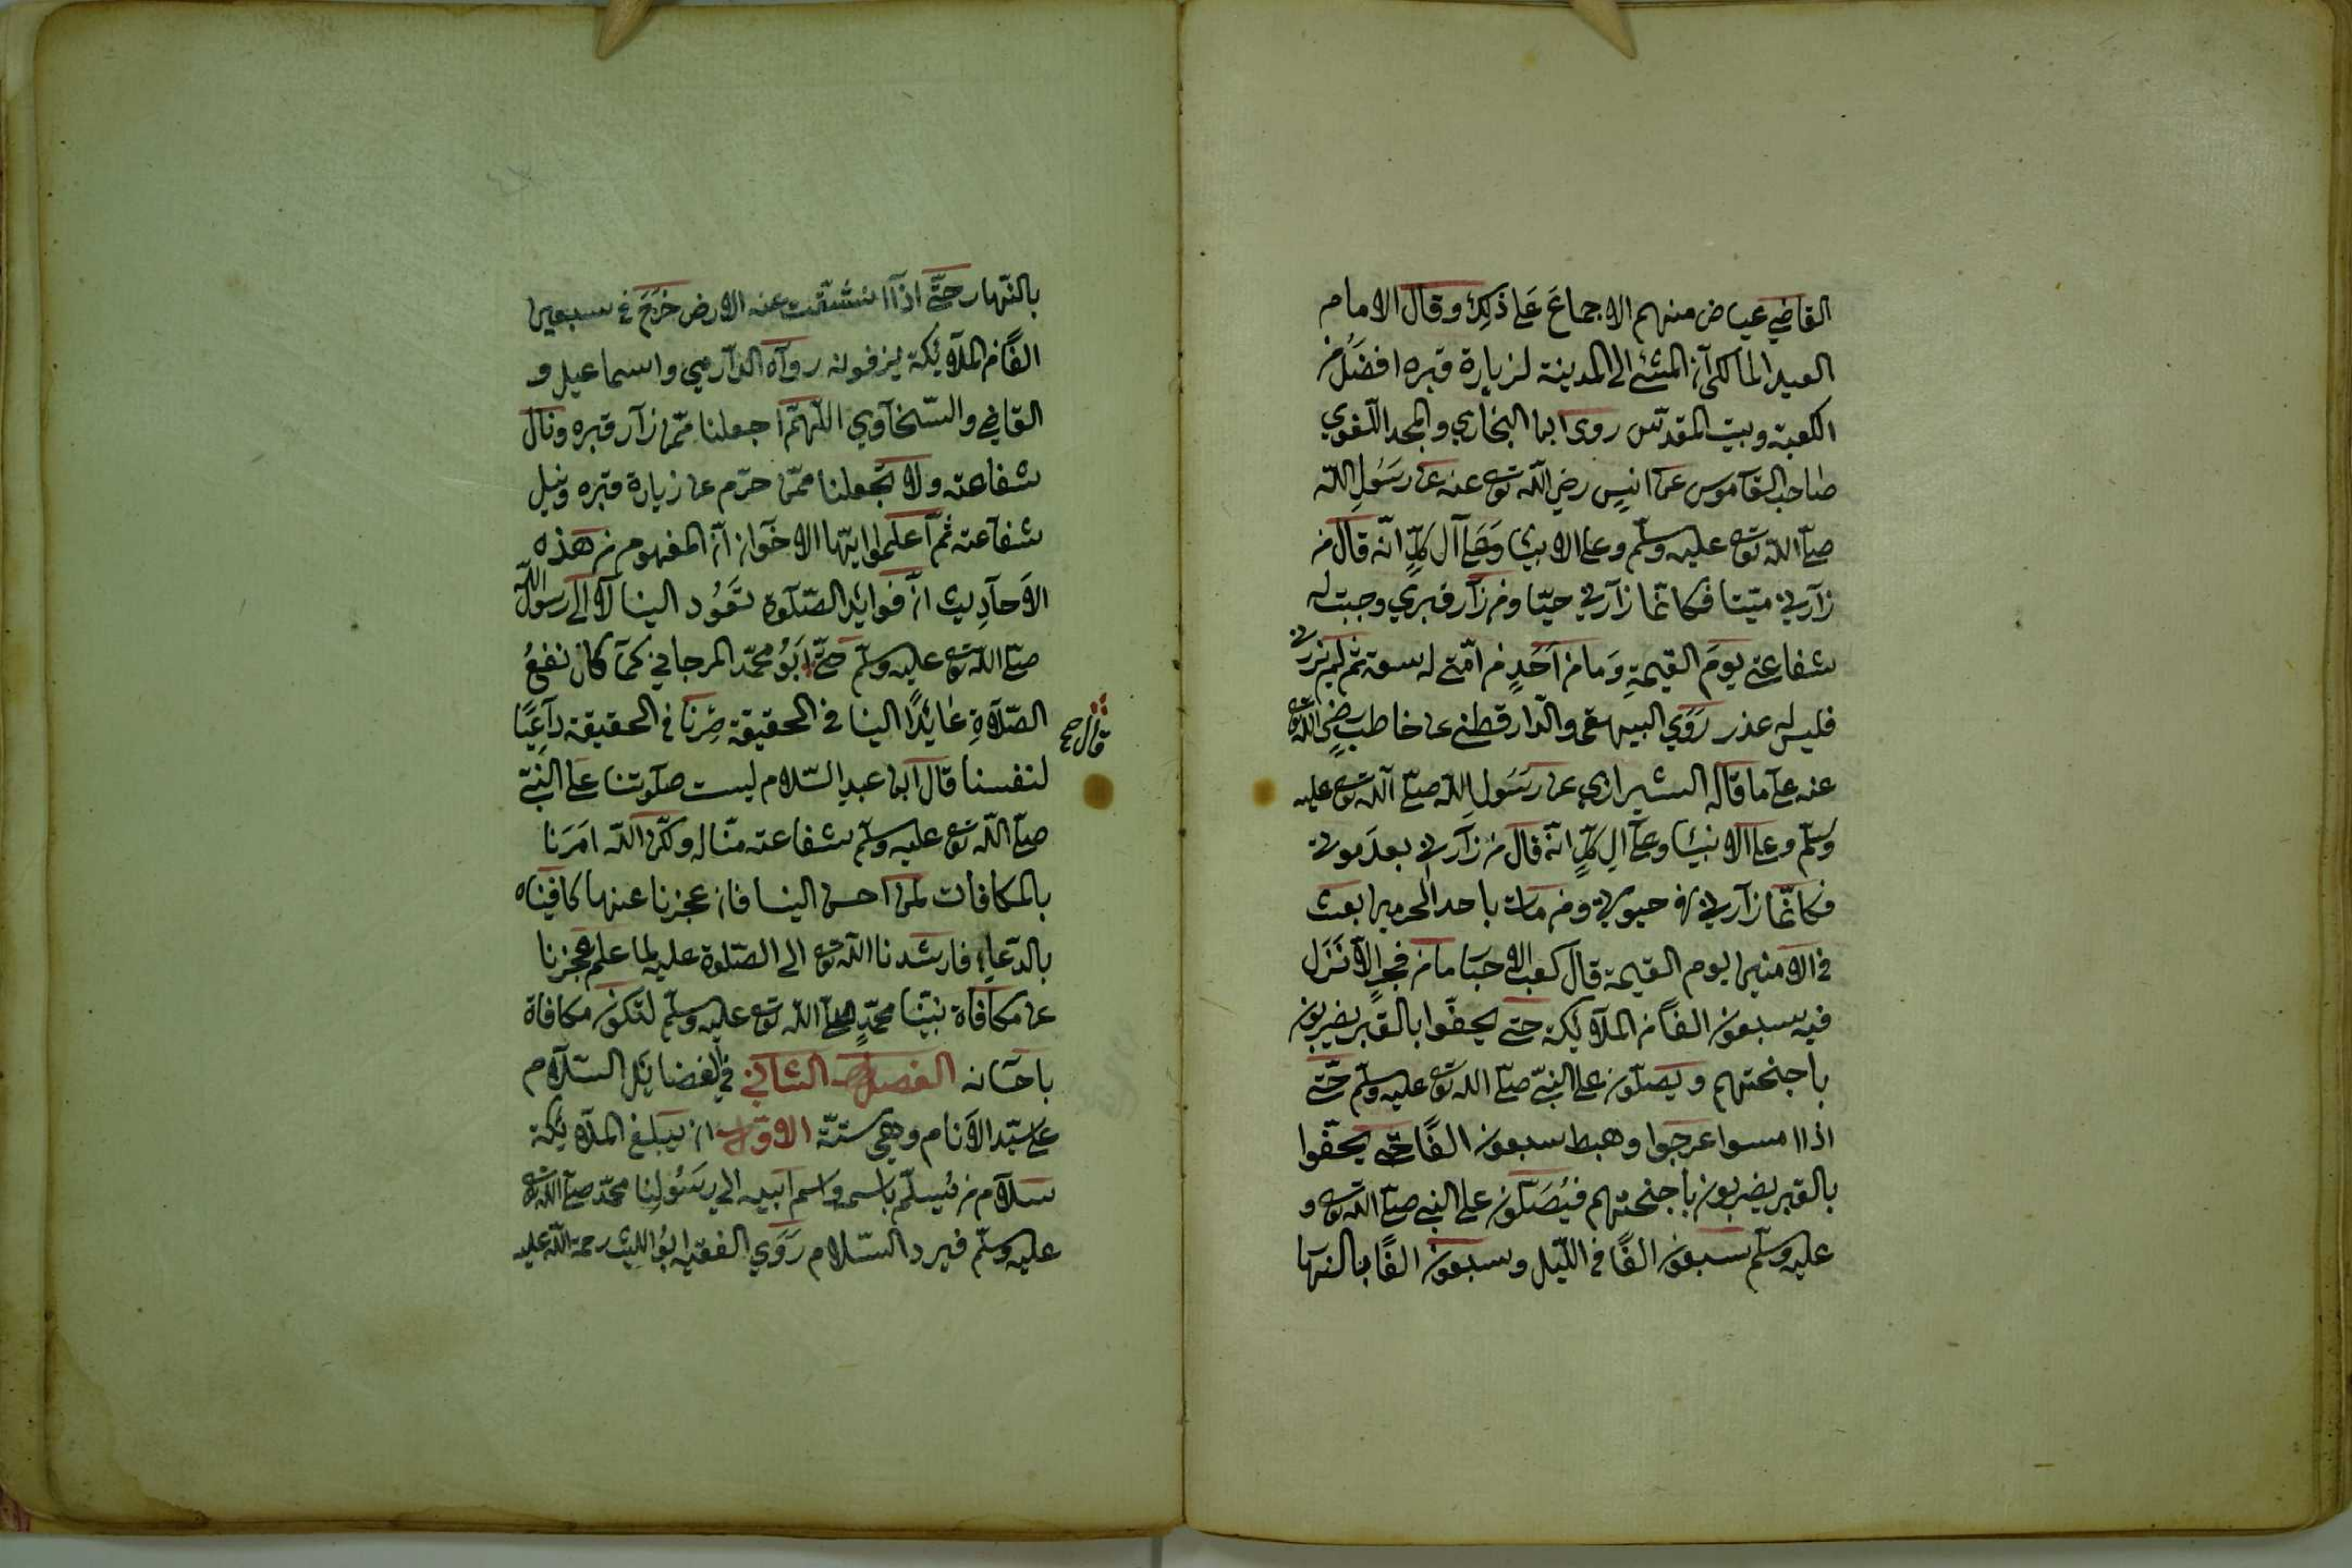 القاضي عياض منهم الاجماع على ذلك وقال الامام
العبدالمالكى ان المشي الى المدينة لزيارة قبره افضل من
الكعبة وبيت المقدّس روى ابن البخاري والمجد اللّغوي
صاحب القاموس عن انس رضي اللّه تع عنه عن رسول اللّه
صلّى اللّه تع عليه وسلّم وعلى الانبيا وعلى آل كلٍّ انّه قال من
زارني ميّتا فكانّما زارني حيّا ومن زار قبري وجبت له
شفاعتي يوم القيمة وما من احدٍ من امّتي له سعة ثم لم يزرني
فليس له عذر روي البيهقى والدّار قطني عن خاطب رضي اللّه تع
عنه على ما قاله الشيرازي عن رسول اللّه صلّى اللّه تع عليه
وسلّم وعلى الانبيا وعلى آل كلٍّ انّه قال من زارني بعد موتي
فكانّما زارني في حيوتي ومن مات باحد الحرمين بعث
في الامنين يوم القيمة قال كعب الاحبا ما من فجرٍ الّا نزل
فيه سبعون الفًا من الملآئكة حتى يحفّوا بالقبر يضربون
باجنحتهم ويصلّون على النبيّ صلّى اللّه تع عليه وسلّم حتّى
اذا امسوا عرجوا وهبط سبعون الفًا حتّى يحفّوا
بالقبر يضربون باجنحتهم فيُصَلّون على النبي صلّى اللّه تع و
عليه وسلّم سبعون الفًا في اللّيل وسبعون الفًا بالنها
بالنّهار حتّى اذا انشقّت عنه الارض خرج في سبعين
الفًا من الملآئكة يزفونه رواه الدّارمي واسماعيل و
القاضي والسّخاوي اللّهمّ اجعلنا ممّن زار قبره ونال
شفاعته ولا تجعلنا ممّن حرّم عن زيارة قبره ونيل
شفاعته ثم اعلموا ايّها الاخوان انّ المفهوم من هذه
الاحاديث انّ فوائد الصّلوة تعود الينا لا الى رسول اللّه
صلّى اللّه تع عليه وسلّم حتّى ابو محمّد المرجاني كما كان نفع
قال صح
الصّلاة عائدًا الينا في الحقيقة صرنا في الحقيقة داعيًا
لنفسنا قال ابن عبد السّلام ليست صلوتنا على النّبيّ
صلّى اللّه تع عليه وسلّم شفاعة منّا له ولكن اللّه امرنا
بالمكافات لمن احسن الينا فان عجزنا عنها كافيناه
بالدّعاء فارشدنا اللّه تع الى الصّلوة عليه لما علم عجزنا
عن مكافاة نبيّنا محمّدٍ صلّى اللّه تع عليه وسلّم لتكون مكافاة
باحسانه الفصل الثاني في الفضايل السّلام
على سيّد الانام وهي ستّة الاوّل ان يبلغ الملآئكة
سلام من يُسلّم باسمه واسم ابيه الى رسولنا محمّد صلّى اللّه تع
عليه وسلّم فيرد السّلام روي الفقيه ابو الليث رحمة اللّه عليه